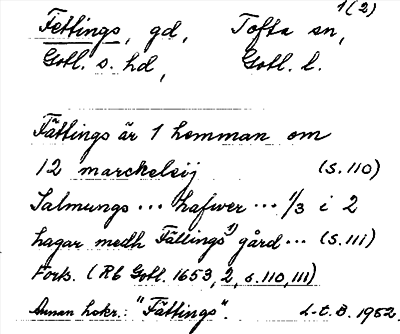 1(2)
Fettings, gd, Tofta sn,
Gotl. s. hd, Gotl. l.
Fättings är 1 hemman om
12 marckeleij (s. 110)
Salmungs ... hafwer ... 1/3 i 2
hagar medh Fättings 1) gård ... (s. 111)
Forts. (Rb Gotl. 1653, 2, s. 110, 111)
Annan hskr.: "Fättings". L-t. B. 1952.